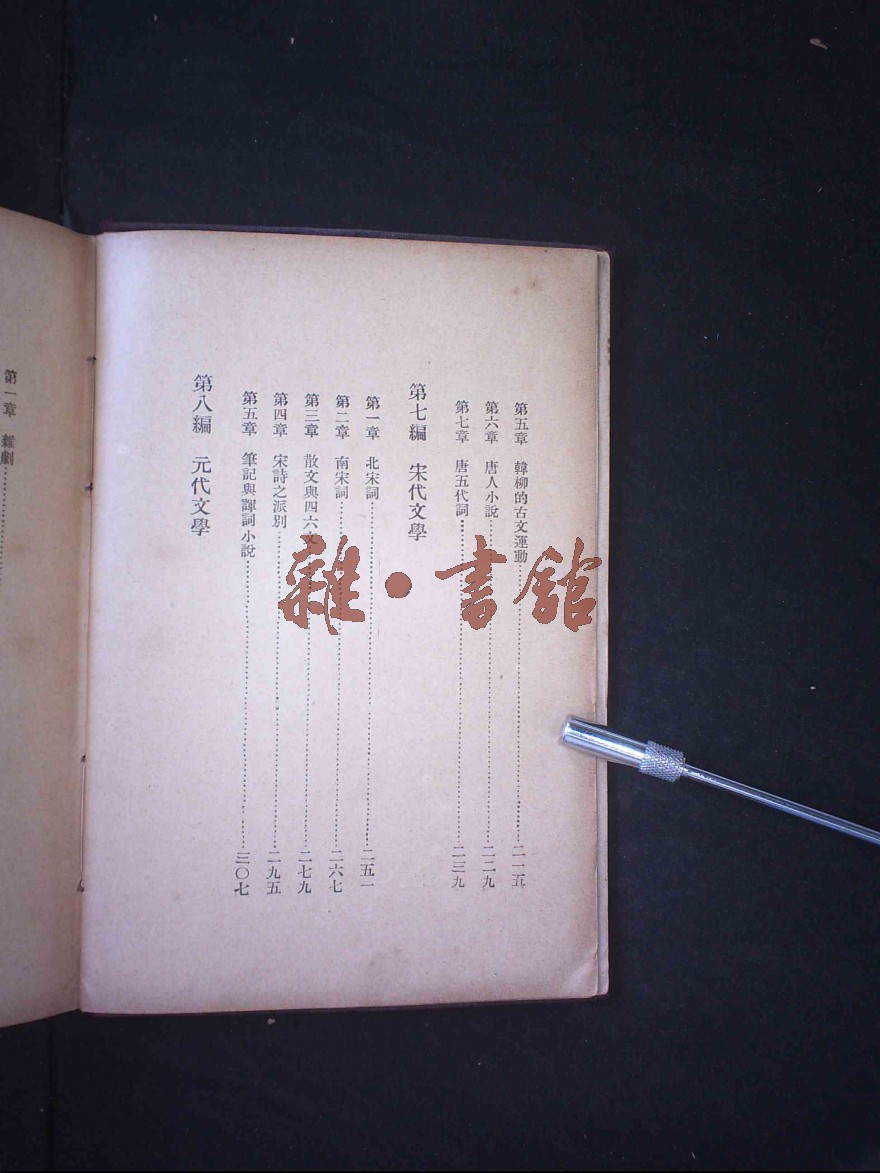 第五章　韓柳的古文運動……二一五
第六章　唐人小說……二二九
第七章　唐五代詞……二三九
第七編　宋代文學
第一章　北宋詞……二五一
第二章　南宋詞……二六七
第三章　散文與四六文……二七九
第四章　宋詩之派別……二九五
第五章　筆記與諢詞小說……三〇七
第八編　元代文學
第一章　雜劇……
雜·書館